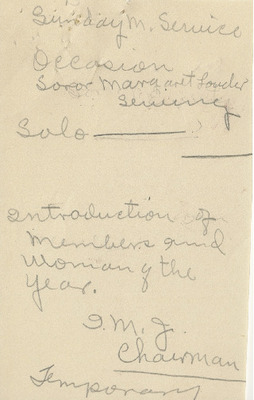 Sunday M. Service
Occasion
Soror Margaret
Solo
Introduction of
Members and
Woman of the
Year.
I. M. J.
Chairman
Temporary